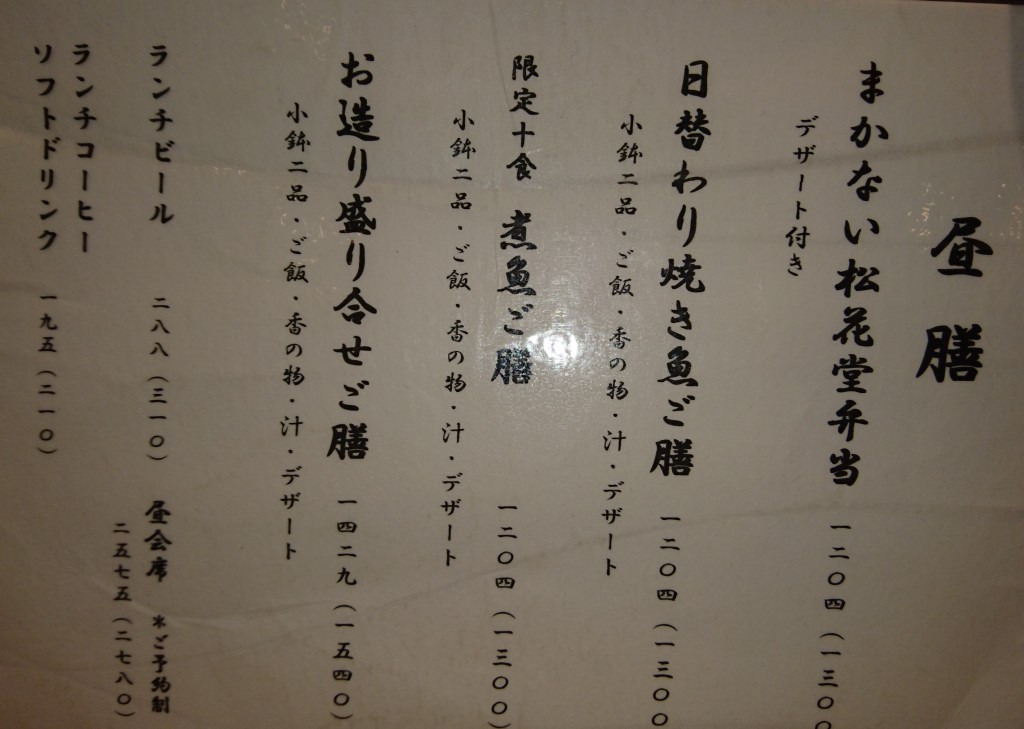 昼膳
まかない松花堂弁当 一二〇四(一三〇〇
デザート付き
日替わり焼き魚ご膳 一二〇四(一三〇〇
小鉢二品・ご飯・香の物・汁・デザート
限定十食 煮魚ご膳 一二〇四(一三〇〇)
小鉢二品・ご飯・香の物・汁・デザート
お造り盛り合せご膳 一四二九(一五四〇)
小鉢二品・ご飯・香の物・汁・デザート
ランチビール 二八八(三一〇)
昼会席 *ご予約制
二五七五(二七八〇)
ランチコーヒー
ソフトドリンク 一九五(二一〇)